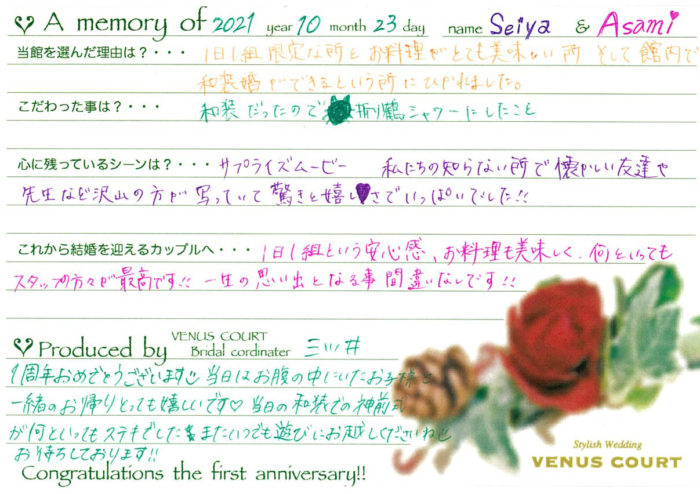 A memory of 2021 year 10 month 23 day name Seiya & Asami
当館を選んだ理由は？・・・ 1日1組限定な所とお料理がとても美味しい所 そして館内で
和装婚ができるという所にひかれました。
こだわった事は？・・・ 和装だったので折り鶴シャワーにしたこと
心に残っているシーンは？・・・ サプライズムービー 私たちの知らない所で懐かしい友達や
先生など沢山の方が写っていて驚きと嬉しさでいっぱいでした!!
これから結婚を迎えるカップルへ・・・ 1日1組という安心感、お料理も美味しく、何といっても
スタッフの方々が最高です!! 一生の思い出となる事間違いなしです!!
Produced by VENUS COURT
Bridal cordinater 三ツ井
1周年おめでとうございます 当日はお腹の中にいたお子様と
一緒のお帰りとっても嬉しいです♡ 当日の和装での神前式
が何といってもステキでした またいつでも遊びにお越しくださいね
お待ちしております!!
Congratulations the first anniversary!!
Stylish Wedding
VENUS COURT